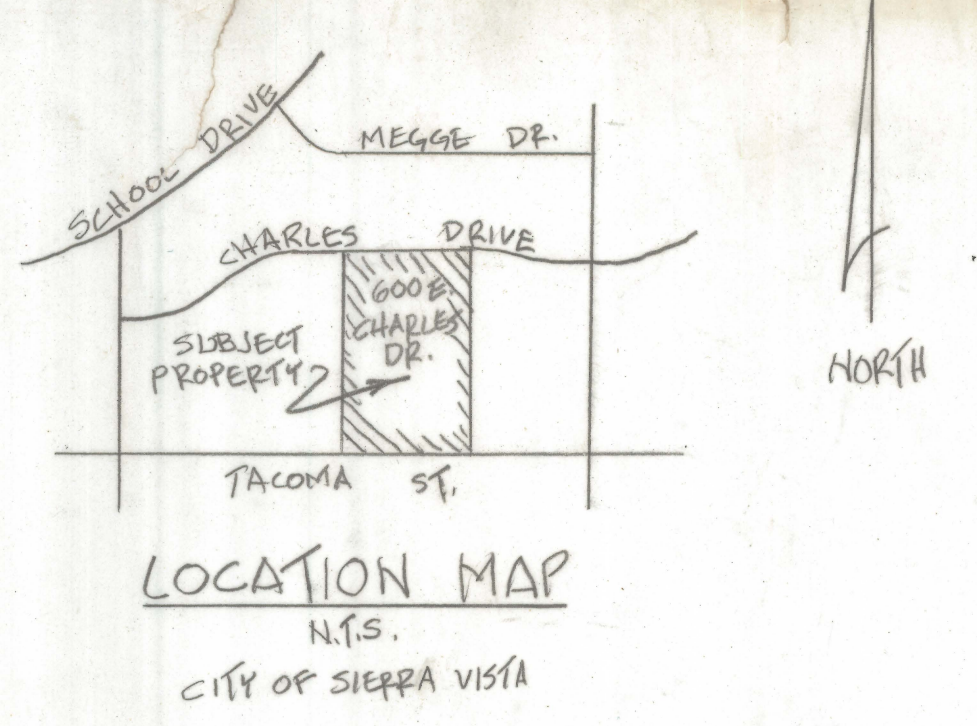 SCHOOL DRIVE
MEGGE DR.
CHARLES DRIVE
600 E.
CHARLES
DR.
SUBJECT
PROPERTY
TACOMA ST.
NORTH
LOCATION MAP
N.T.S.
CITY OF SIERRA VISTA